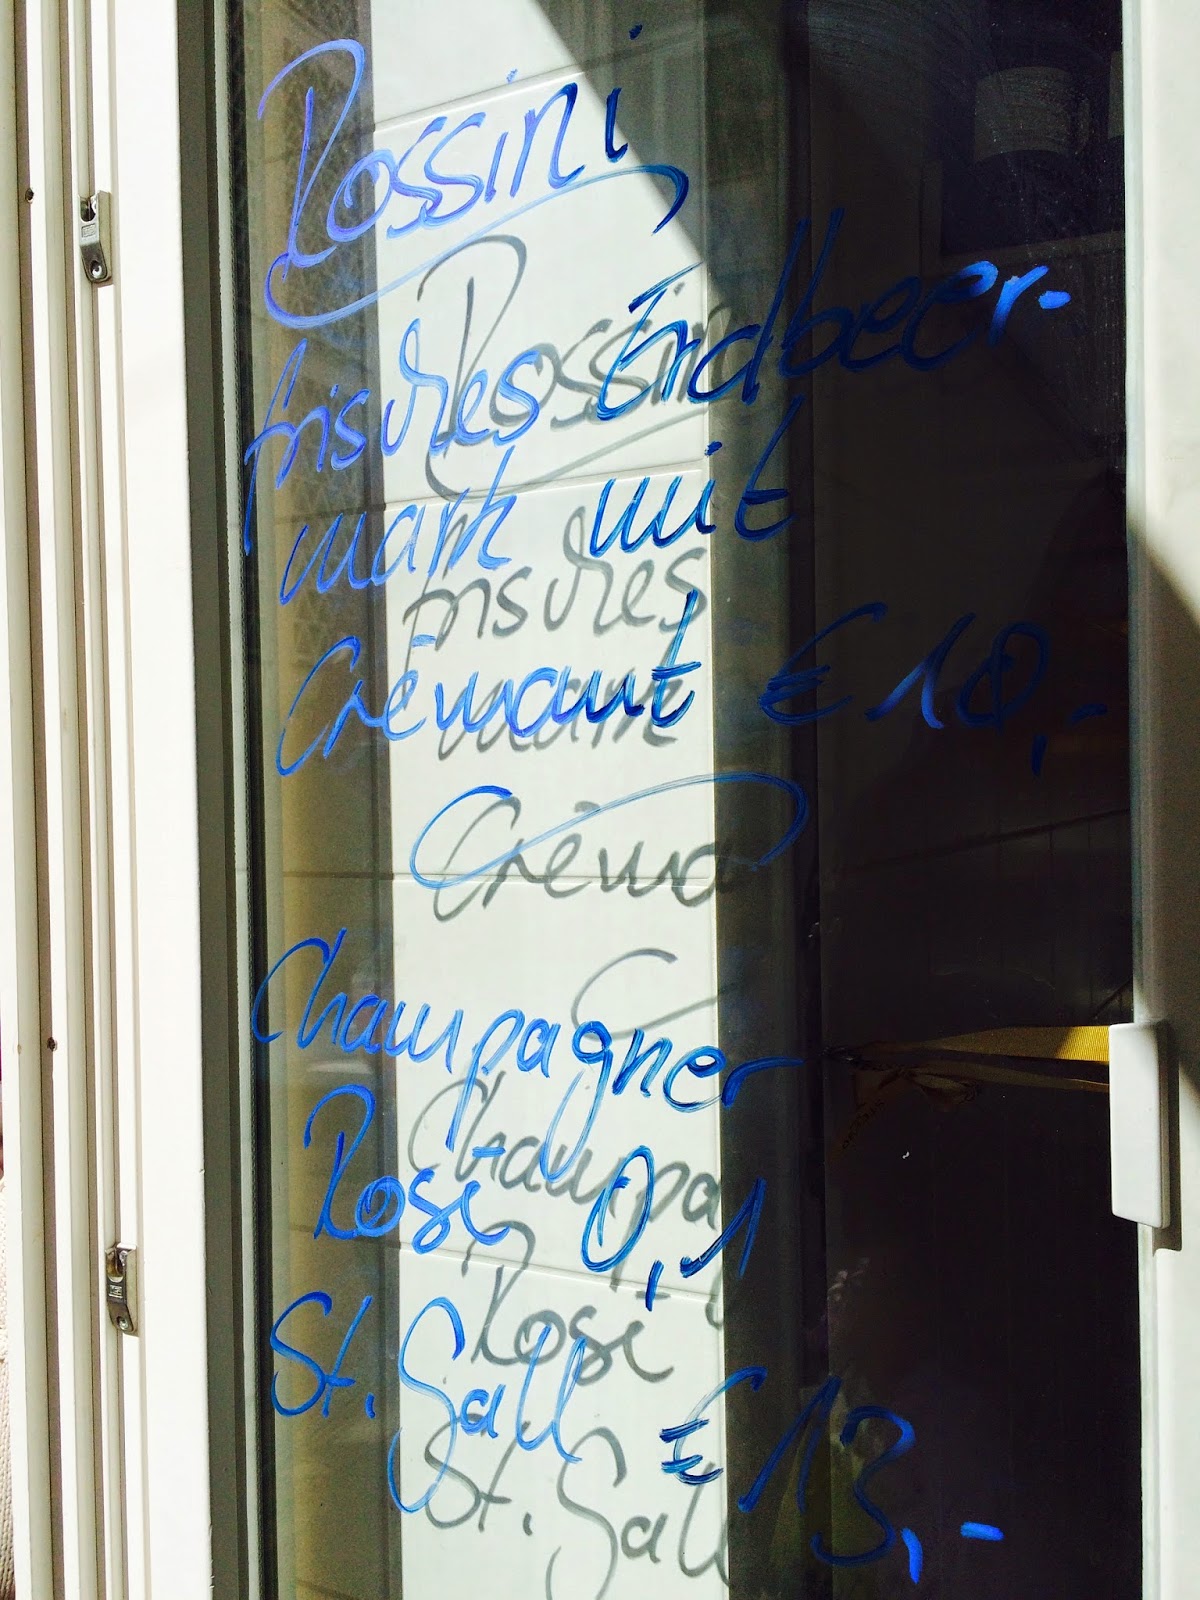 Rossini
frisches Erdbeer-
mark mit
Crémant € 10,-
Champagner
Rosé 0,1
St. Gall € 13,-